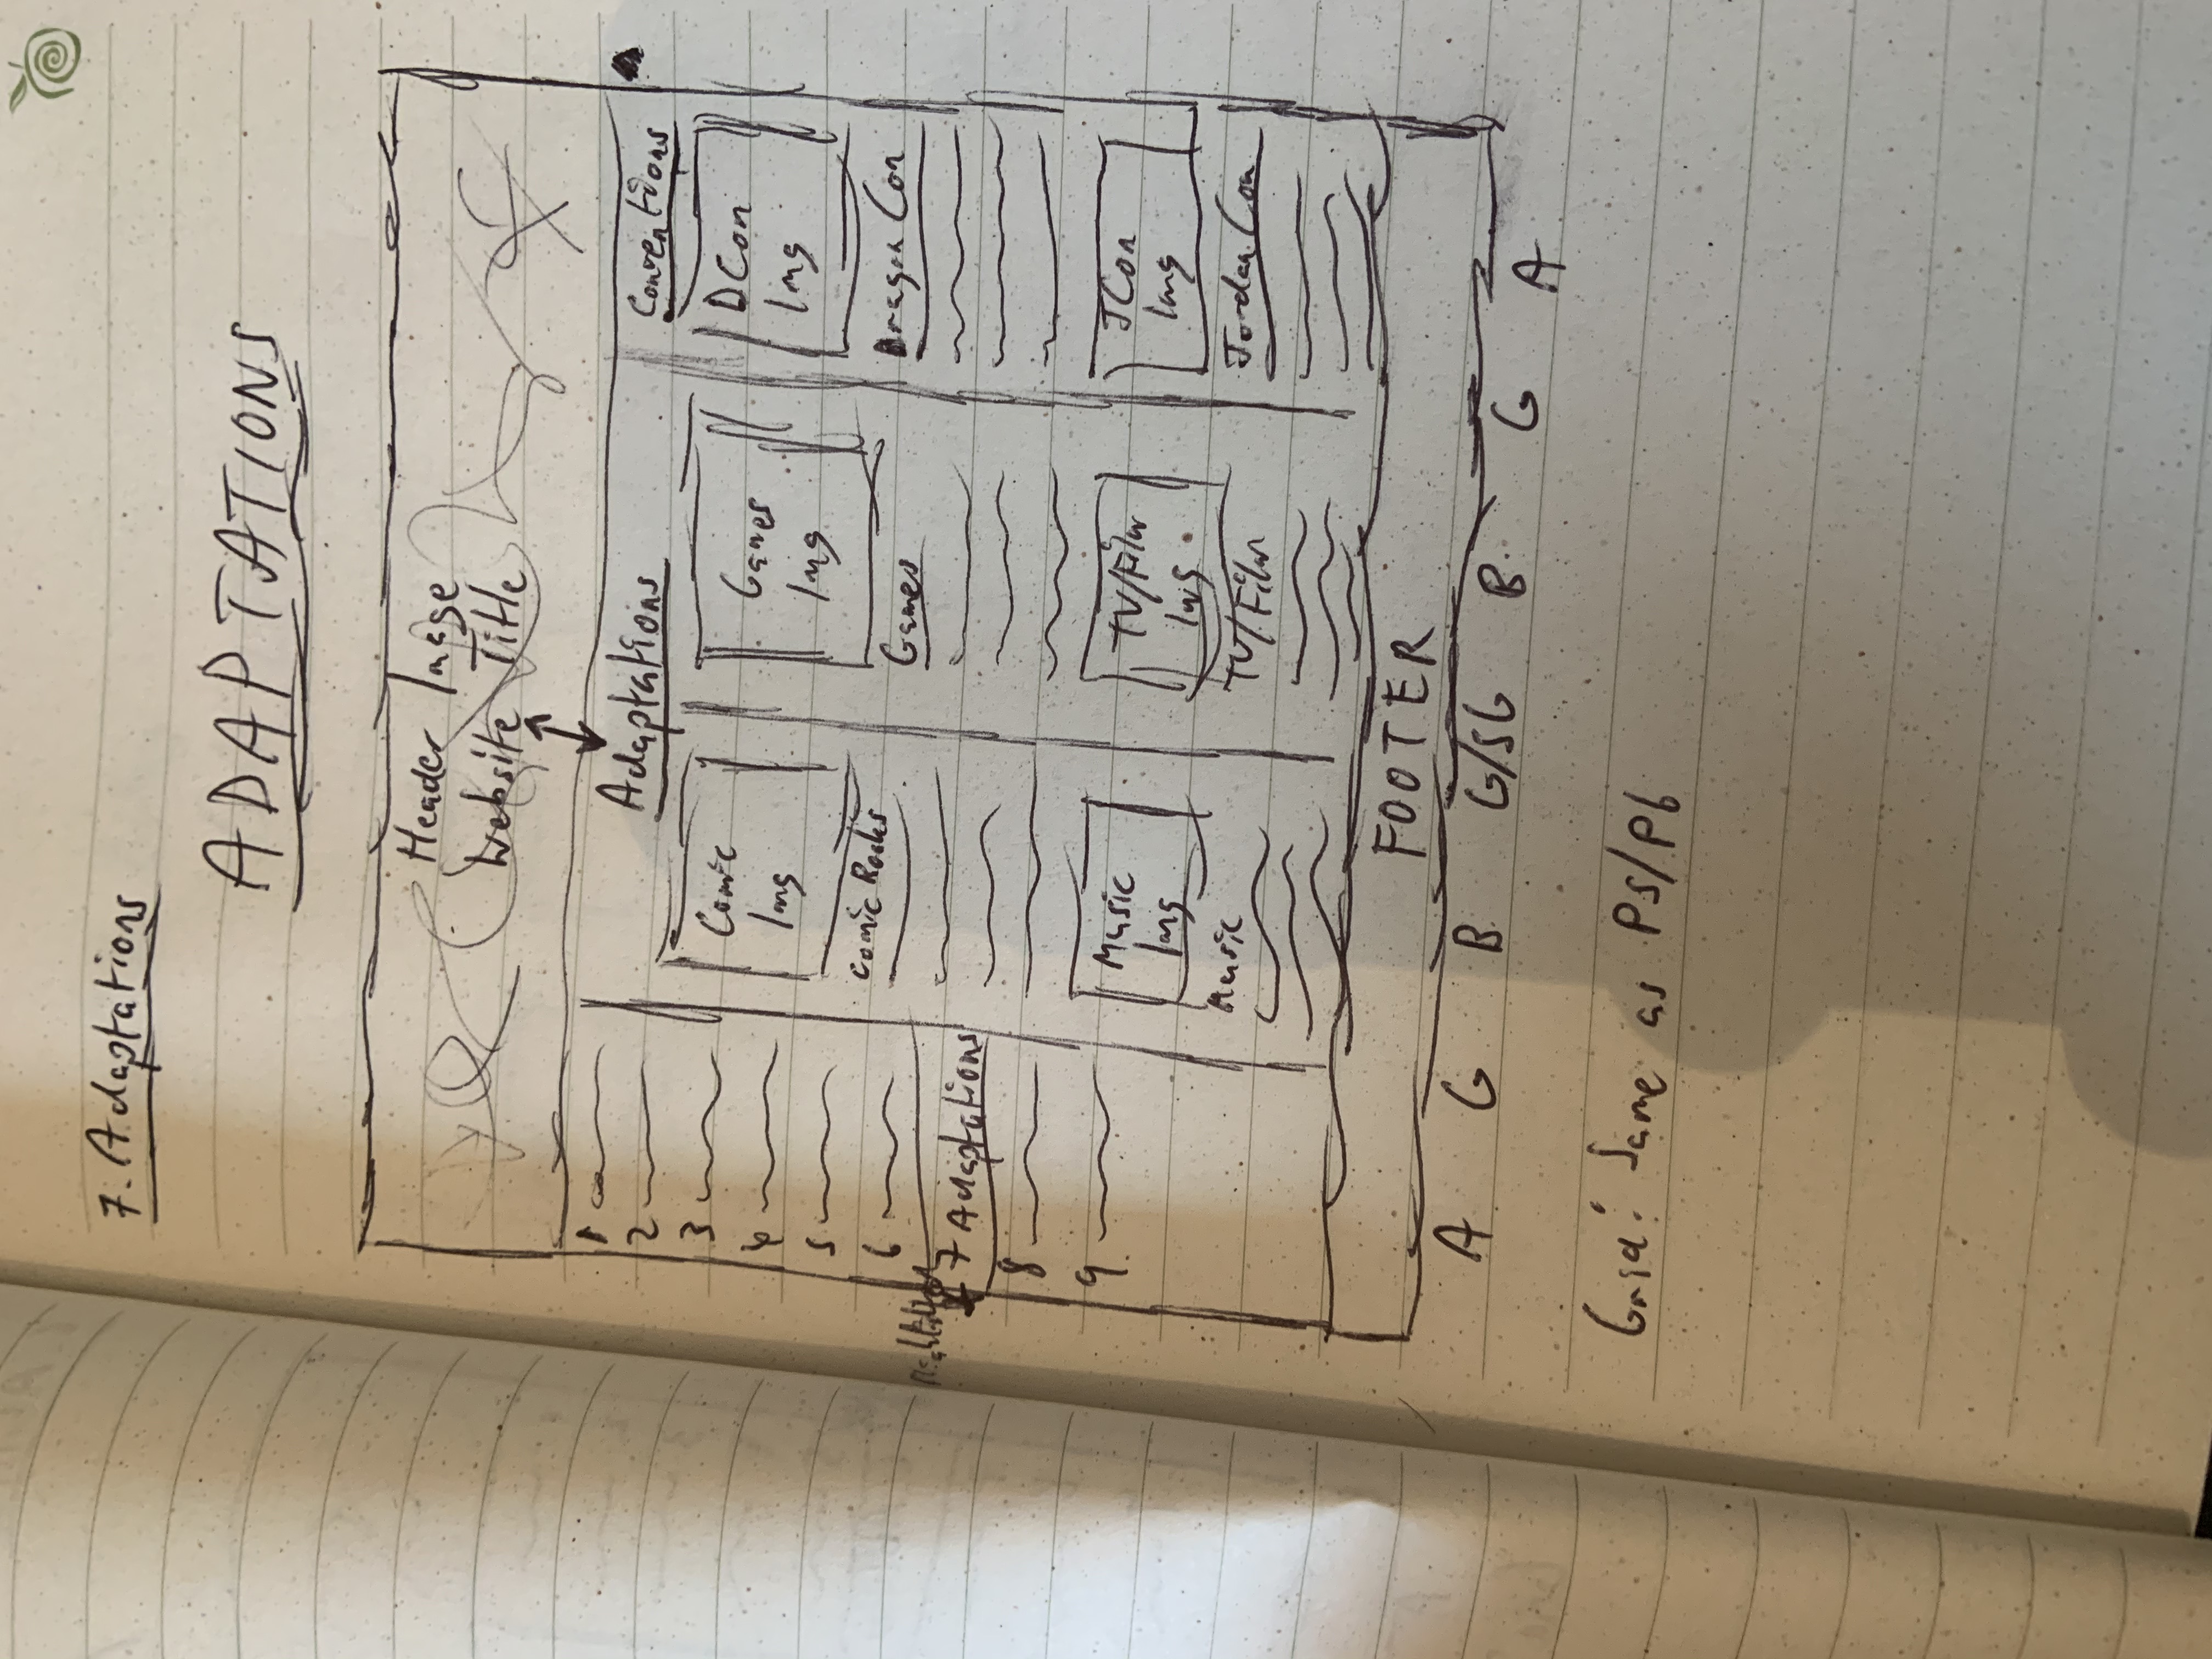 7. Adaptations
ADAPTATIONS
Header Image
Website Title
1
2
3
4
5
6
7 Adaptations
8
9.
Adaptations
Comic
Img
Comic Books
Music
Img
Music
Games
Img
Games
TV/Film
Img
TV/Film
Conventions
DCon
Img
Dragon Con
JCon
Img
Jordan Con
FOOTER
A G B G/SG B G A
Grid: Same as P5/P6